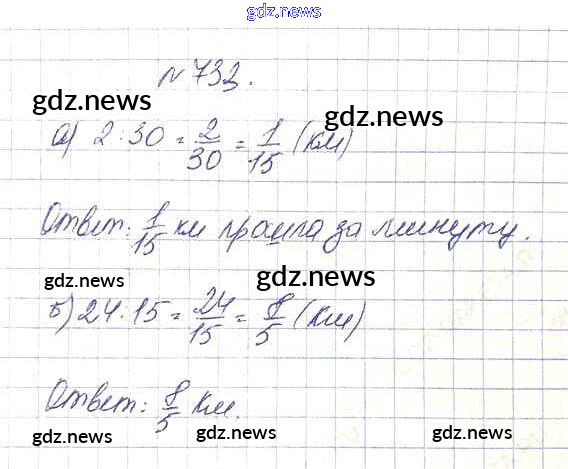 gdz.news
№ 733.
gdz.news
gdz.news
а) 2:30 = 2/30 = 1/15 (км)
Ответ: 1/15 км прошла за минуту.
gdz.news
gdz.news
б) 24:15 = 24/15 = 8/5 (км)
Ответ: 8/5 км.
gdz.news
gdz.news
gdz.news